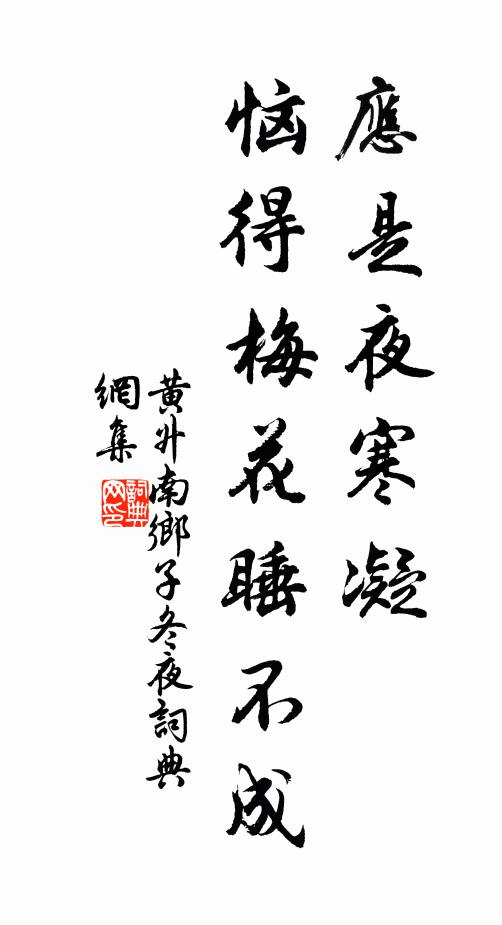 應是夜寒凝
恼得梅花睡不成
黄升南鄉子冬夜詞典
網集
詞典网印